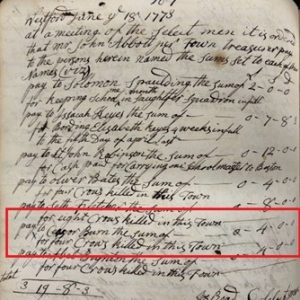 Westford June ye 18th 1773
at a meeting of the Select men it is ordered
that mr. John Abbott ye town treasurer pay
to the persons herein named the sums set to each of their
Names (vizt)
pay to Solomon Spaulding the sum of 2-0-0
for keeping School one month in Squadron in full
pay to Issacah Keyes the sum of 0-7-8
for Boarding Elizabeth Keyes 4 weeks in full
to the Day of april last
pay to Lt John Robinson the sum of 0-12-0
for Cash paid for carrying one to Boston
pay to oliver Bates the sum of 0-4-0
for four Crows killed in this Town
pay to Seth Fletcher the sum of 0-8-0
for eight Crows killed in this Town
pay to the sum of 0-4-0
for four Crows killed in this Town
pay to the sum of
for four Crows killed in this Town
total
3 19-8-3